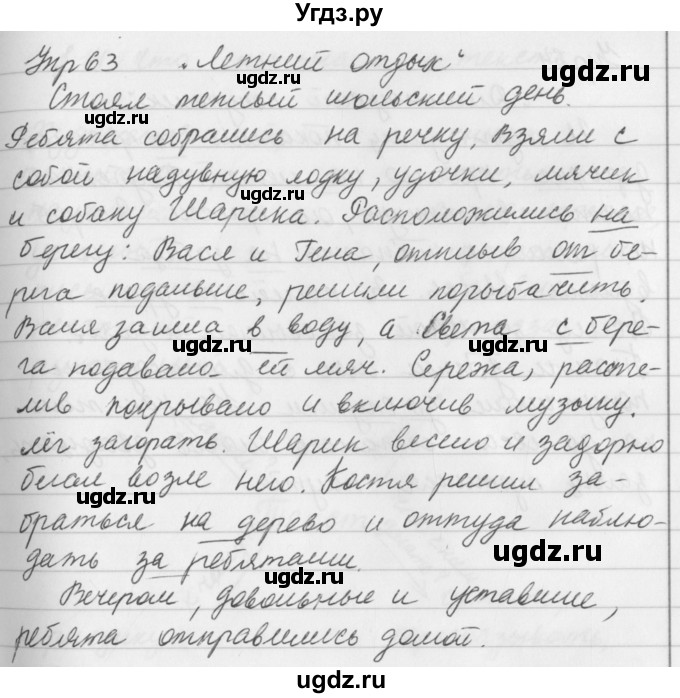 Угдз.ру
Упр 63 „Летний отдых“
Стоял теплый июльский день.
Ребята собрались на речку. Взяли с
собой надувную лодку, удочки, мячик
и собаку Шарика. Расположились на
берегу: Вася и Гена, отплыв от бе-
рега подальше, решили порыбачить.
Валя зашла в воду, а Света с бере-
га подавала ей мяч. Сережа, рассте-
лив покрывало и включив музыку,
лёг загорать. Шарик весело и задорно
бегал возле него. Костя решил за-
браться на дерево и оттуда наблю-
дать за ребятами.
Вечером, довольные и уставшие,
ребята отправились домой.
ugdz.ru
ugdz.ru
ugdz.ru
ugdz.ru
ugdz.ru
ugdz.ru
ugdz.ru
ugdz.ru
ugdz.ru
ugdz.ru
ugdz.ru
ugdz.ru
ugdz.ru